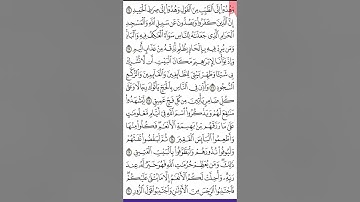 وَهُدُوٓاْ إِلَى ٱلطَّيِّبِ مِنَ ٱلْقَوْلِ وَهُدُوٓاْ إِلَىٰ صِرَٰطِ ٱلْحَمِيدِ ٢٤
إِنَّ ٱلَّذِينَ كَفَرُواْ وَيَصُدُّونَ عَن سَبِيلِ ٱللَّهِ وَٱلْمَسْجِدِ
ٱلْحَرَامِ ٱلَّذِى جَعَلْنَٰهُ لِلنَّاسِ سَوَآءً ٱلْعَٰكِفُ فِيهِ وَٱلْبَادِ
وَمَن يُرِدْ فِيهِ بِإِلْحَادٍ بِظُلْمٍ نُّذِقْهُ مِنْ عَذَابٍ أَلِيمٍ ٢٥
وَإِذْ بَوَّأْنَا لِإِبْرَٰهِيمَ مَكَانَ ٱلْبَيْتِ أَن لَّا تُشْرِكْ بِى
شَيْـًٔا وَطَهِّرْ بَيْتِىَ لِلطَّآئِفِينَ وَٱلْقَآئِمِينَ وَٱلرُّكَّعِ
ٱلسُّجُودِ ٢٦ وَأَذِّن فِى ٱلنَّاسِ بِٱلْحَجِّ يَأْتُوكَ رِجَالًا وَعَلَىٰ
كُلِّ ضَامِرٍ يَأْتِينَ مِن كُلِّ فَجٍّ عَمِيقٍ ٢٧ لِّيَشْهَدُواْ
مَنَٰفِعَ لَهُمْ وَيَذْكُرُواْ ٱسْمَ ٱللَّهِ فِىٓ أَيَّامٍ مَّعْلُومَٰتٍ
عَلَىٰ مَا رَزَقَهُم مِّنۢ بَهِيمَةِ ٱلْأَنْعَٰمِ فَكُلُواْ مِنْهَا
وَأَطْعِمُواْ ٱلْبَآئِسَ ٱلْفَقِيرَ ٢٨ ثُمَّ لْيَقْضُواْ تَفَثَهُمْ
وَلْيُوفُواْ نُذُورَهُمْ وَلْيَطَّوَّفُواْ بِٱلْبَيْتِ ٱلْعَتِيقِ ٢٩
ذَٰلِكَ وَمَن يُعَظِّمْ حُرُمَٰتِ ٱللَّهِ فَهُوَ خَيْرٌ لَّهُۥ عِندَ
رَبِّهِۦ وَأُحِلَّتْ لَكُمُ ٱلْأَنْعَٰمُ إِلَّا مَا يُتْلَىٰ عَلَيْكُمْ
فَٱجْتَنِبُواْ ٱلرِّجْسَ مِنَ ٱلْأَوْثَٰنِ وَٱجْتَنِبُواْ قَوْلَ ٱلزُّورِ ٣٠